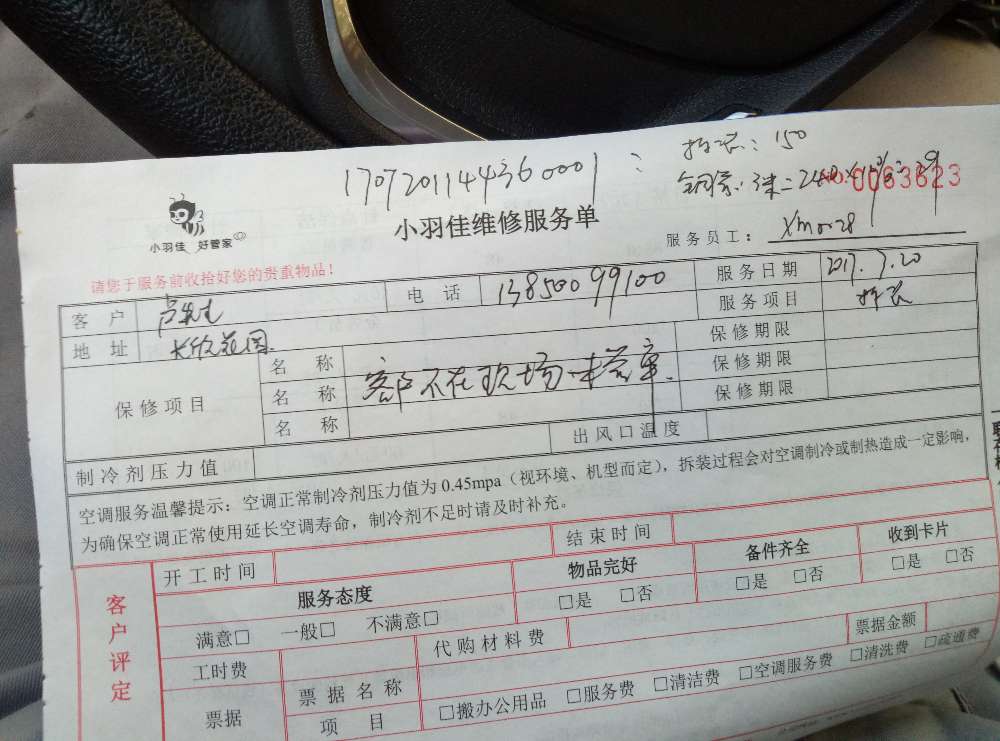 1707201144360001: 拆装: 150
NO:0063623
小羽佳 好管家
小羽佳维修服务单
服务员工: Xm0028
请您于服务前收拾好您的贵重物品!
客户 卢先生 电话 13850099100 服务日期 2017.7.20
地址 长欣花园 服务项目 拆装
保修项目
名称 保修期限
名称 客户不在现场 未签章. 保修期限
名称 保修期限
制冷剂压力值 出风口温度
空调服务温馨提示:空调正常制冷剂压力值为0.45mpa(视环境、机型而定),拆装过程会对空调制冷或制热造成一定影响,
为确保空调正常使用延长空调寿命,制冷剂不足时请及时补充。
客户评定
开工时间 结束时间
服务态度 物品完好 备件齐全 收到卡片
满意□ 一般□ 不满意□ □是 □否 □是 □否 □是 □否
工时费 代购材料费 票据金额
票据 票据名称
项目 □搬办公用品 □服务费 □清洁费 □空调服务费 □清洗费 □疏通费